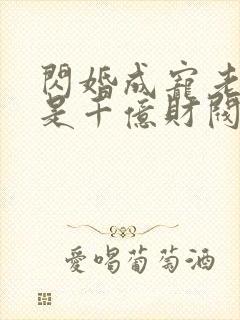 閃婚成寵老
是千億財閥
愛喝葡萄酒